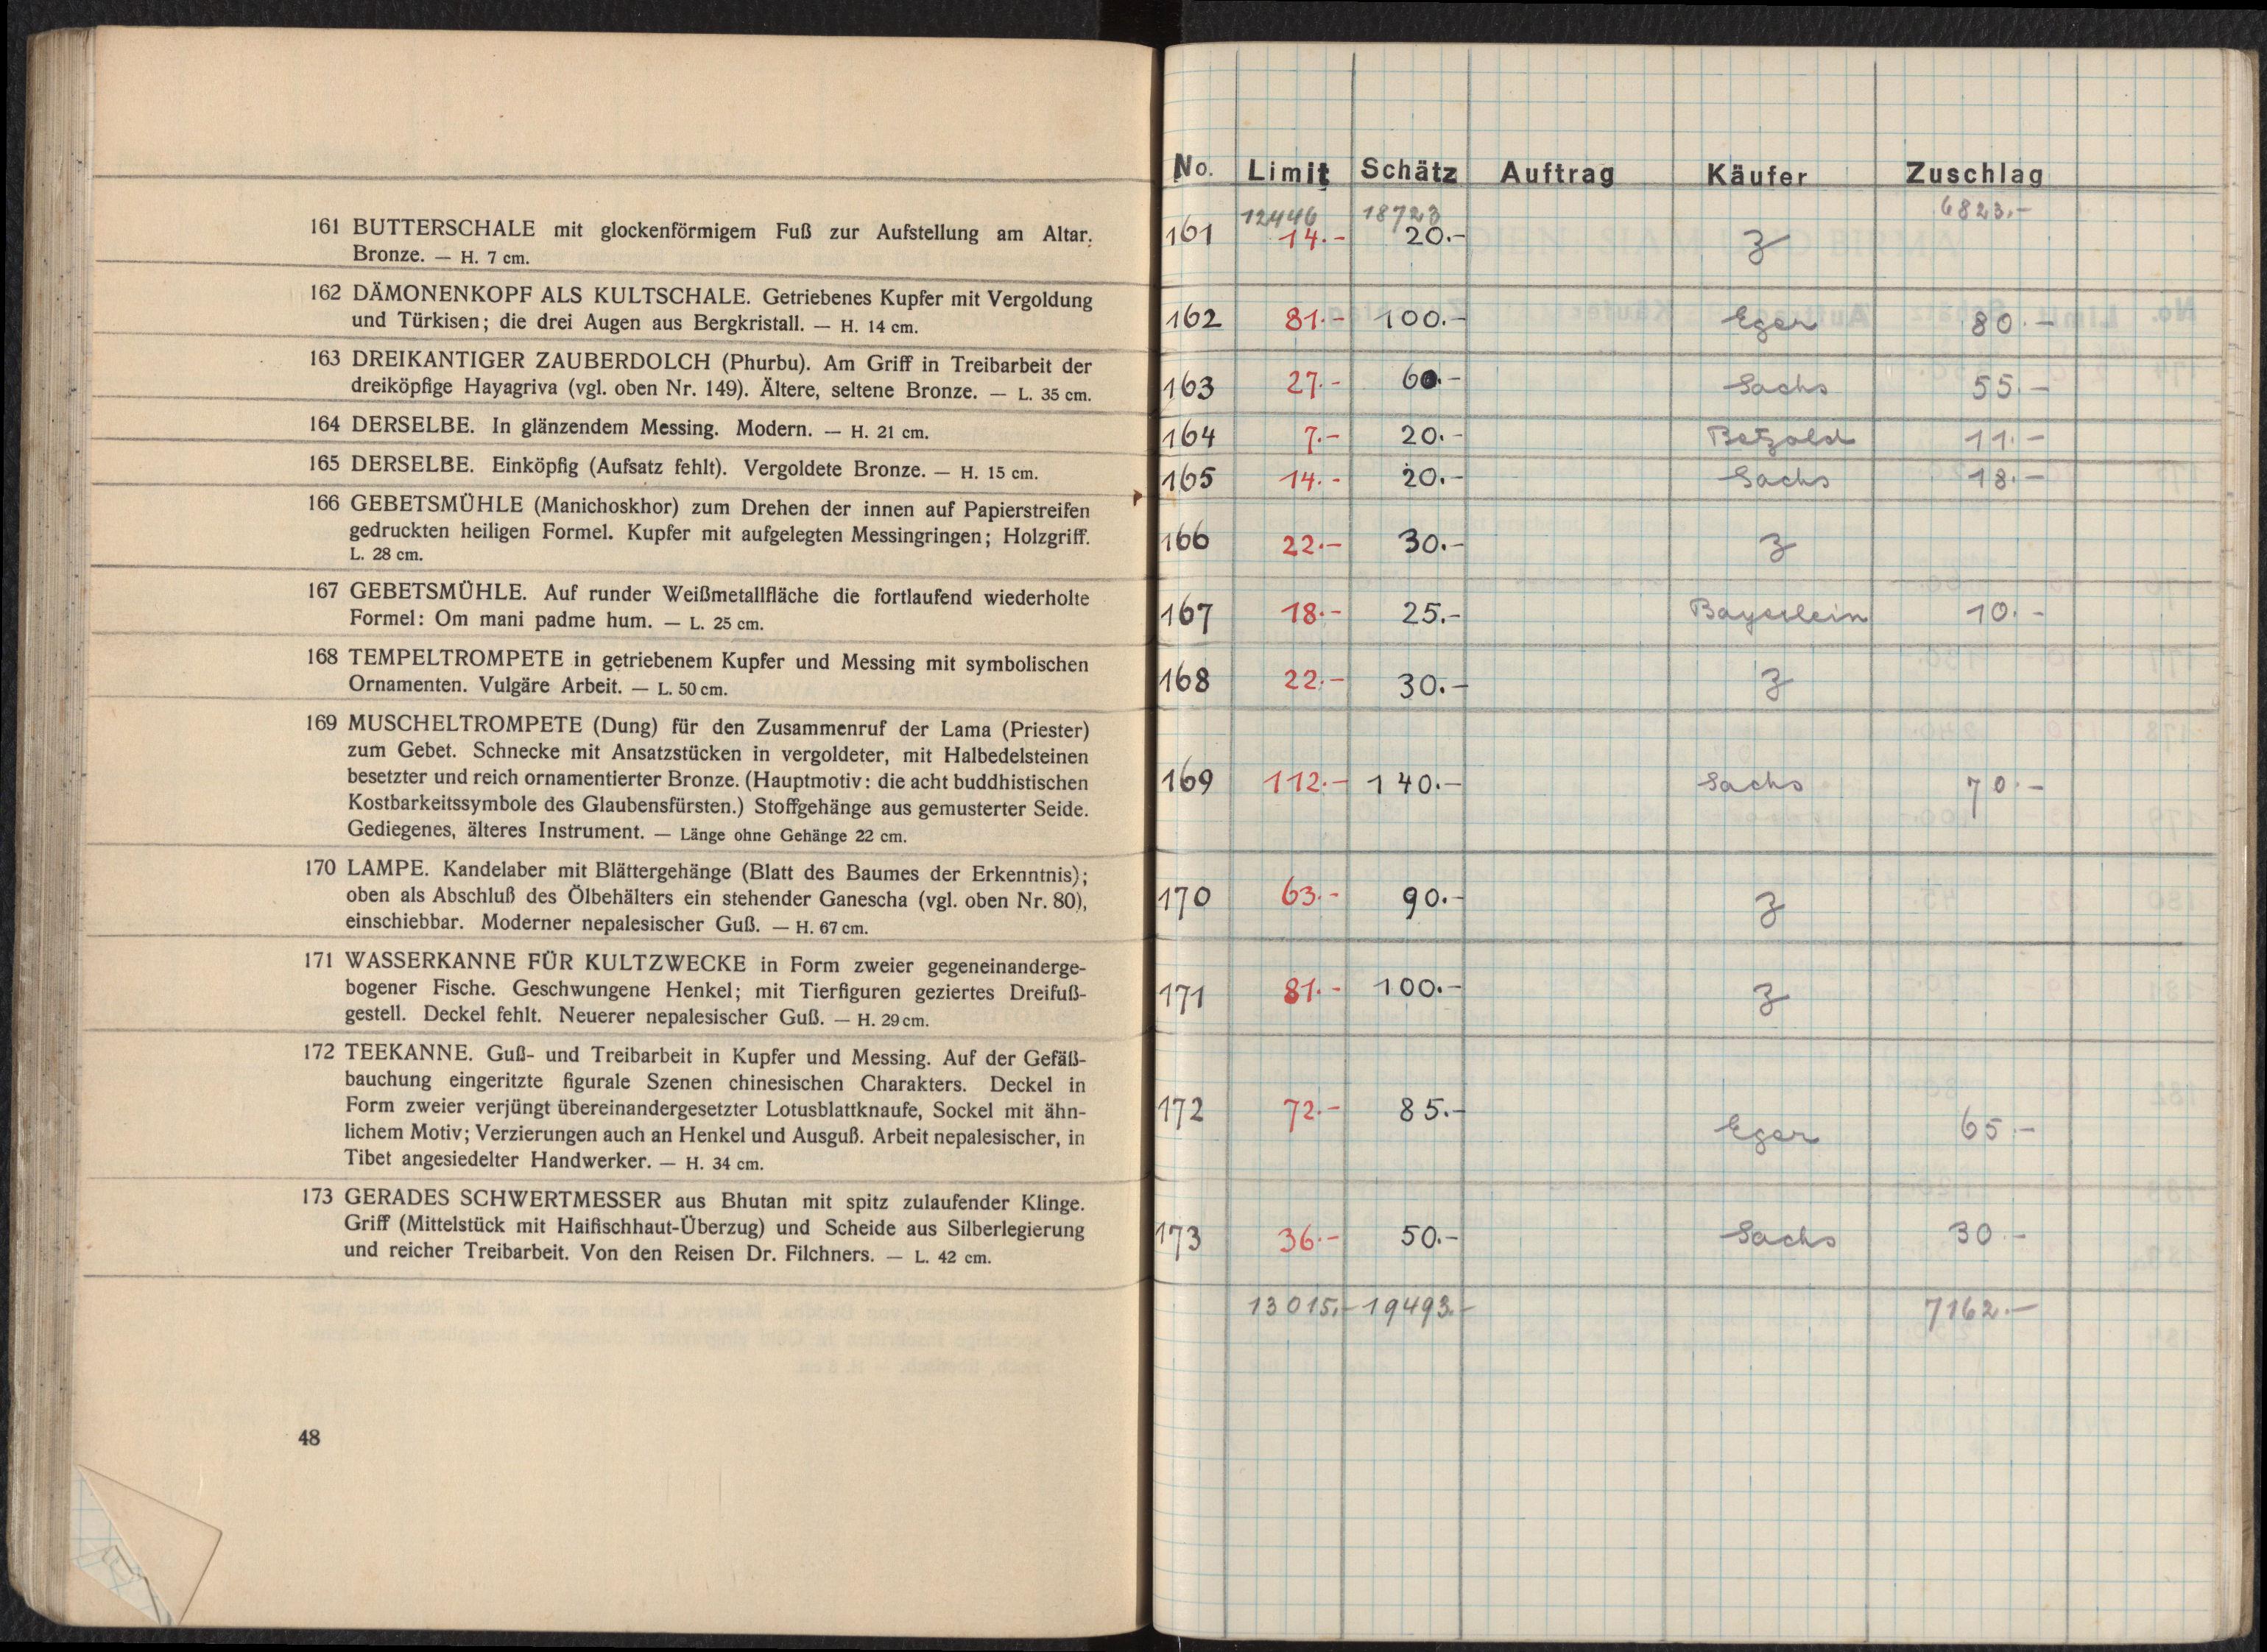 161 BUTTERSCHALE mit glockenförmigem Fuß zur Aufstellung am Altar.
Bronze. — H. 7 cm.
162 DÄMONENKOPF ALS KULTSCHALE. Getriebenes Kupfer mit Vergoldung
und Türkisen; die drei Augen aus Bergkristall. — H. 14 cm.
163 DREIKANTIGER ZAUBERDOLCH (Phurbu). Am Griff in Treibarbeit der
dreiköpfige Hayagriva (vgl. oben Nr. 149). Ältere, seltene Bronze. — L. 35 cm.
164 DERSELBE. In glänzendem Messing. Modern. — H. 21 cm.
165 DERSELBE. Einköpfig (Aufsatz fehlt). Vergoldete Bronze. — H. 15 cm.
166 GEBETSMÜHLE (Manichoskhor) zum Drehen der innen auf Papierstreifen
gedruckten heiligen Formel. Kupfer mit aufgelegten Messingringen; Holzgriff.
L. 28 cm.
167 GEBETSMÜHLE. Auf runder Weißmetallfläche die fortlaufend wiederholte
Formel: Om mani padme hum. — L. 25 cm.
168 TEMPELTROMPETE in getriebenem Kupfer und Messing mit symbolischen
Ornamenten. Vulgäre Arbeit. — L. 50 cm.
169 MUSCHELTROMPETE (Dung) für den Zusammenruf der Lama (Priester)
zum Gebet. Schnecke mit Ansatzstücken in vergoldeter, mit Halbedelsteinen
besetzter und reich ornamentierter Bronze. (Hauptmotiv: die acht buddhistischen
Kostbarkeitssymbole des Glaubensfürsten.) Stoffgehänge aus gemusterter Seide.
Gediegenes, älteres Instrument. — Länge ohne Gehänge 22 cm.
170 LAMPE. Kandelaber mit Blättergehänge (Blatt des Baumes der Erkenntnis);
oben als Abschluß des Ölbehälters ein stehender Ganescha (vgl. oben Nr. 80),
einschiebbar. Moderner nepalesischer Guß. — H. 67 cm.
171 WASSERKANNE FÜR KULTZWECKE in Form zweier gegeneinanderge-
bogener Fische. Geschwungene Henkel; mit Tierfiguren geziertes Dreifuß-
gestell. Deckel fehlt. Neuerer nepalesischer Guß. — H. 29 cm.
172 TEEKANNE. Guß- und Treibarbeit in Kupfer und Messing. Auf der Gefäß-
bauchung eingeritzte figurale Szenen chinesischen Charakters. Deckel in
Form zweier verjüngt übereinandergesetzter Lotusblattknaufe, Sockel mit ähn-
lichem Motiv; Verzierungen auch an Henkel und Ausguß. Arbeit nepalesischer, in
Tibet angesiedelter Handwerker. — H. 34 cm.
173 GERADES SCHWERTMESSER aus Bhutan mit spitz zulaufender Klinge.
Griff (Mittelstück mit Haifischhaut-Überzug) und Scheide aus Silberlegierung
und reicher Treibarbeit. Von den Reisen Dr. Filchners. — L. 42 cm.
48
No. Limit Schätz Auftrag Käufer Zuschlag
12446 18723 6823.-
161 14.- 20.- Z
162 81.- 100.- Eger 80.-
163 27.- 60.- Sachs 55.-
164 7.- 20.- Betzold 11.-
165 14.- 20.- Sachs 18.-
166 22.- 30.- Z
167 18.- 25.- Bayerlein 10.-
168 22.- 30.- Z
169 112.- 140.- Sachs 70.-
170 63.- 90.- Z
171 81.- 100.- Z
172 72.- 85.- Eger 65.-
173 36.- 50.- Sachs 30.-
13015.- 19493.- 7162.-